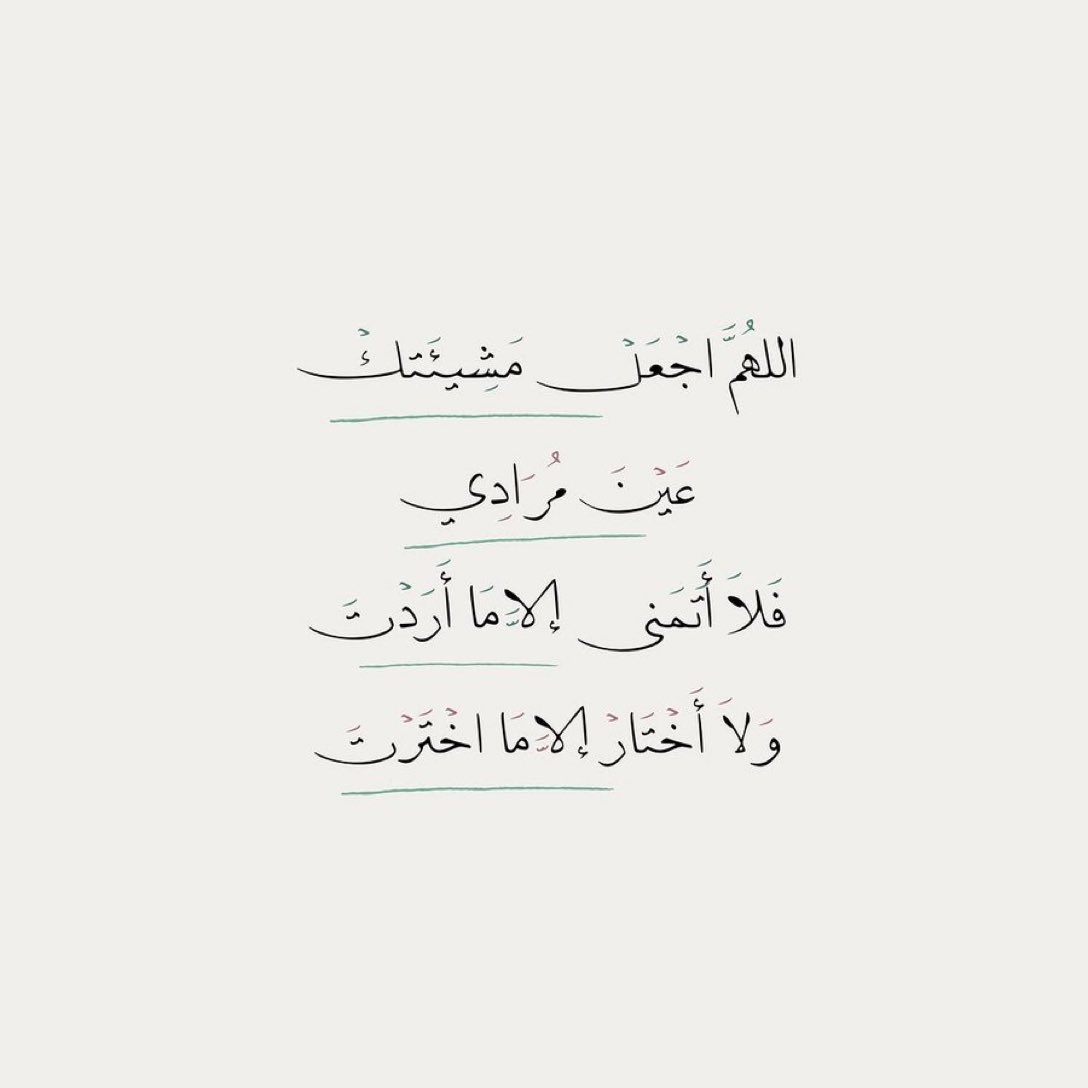 اللهُمَّ اجْعَلْ مَشِيئَتكْ
عَيْنَ مُرَادِي
فَلاَ أَتَمَنى إلاَّ مَا أَرَدْتَ
وَلاَ أَخْتَارْ إلاَّ مَا اخْتَرْتَ